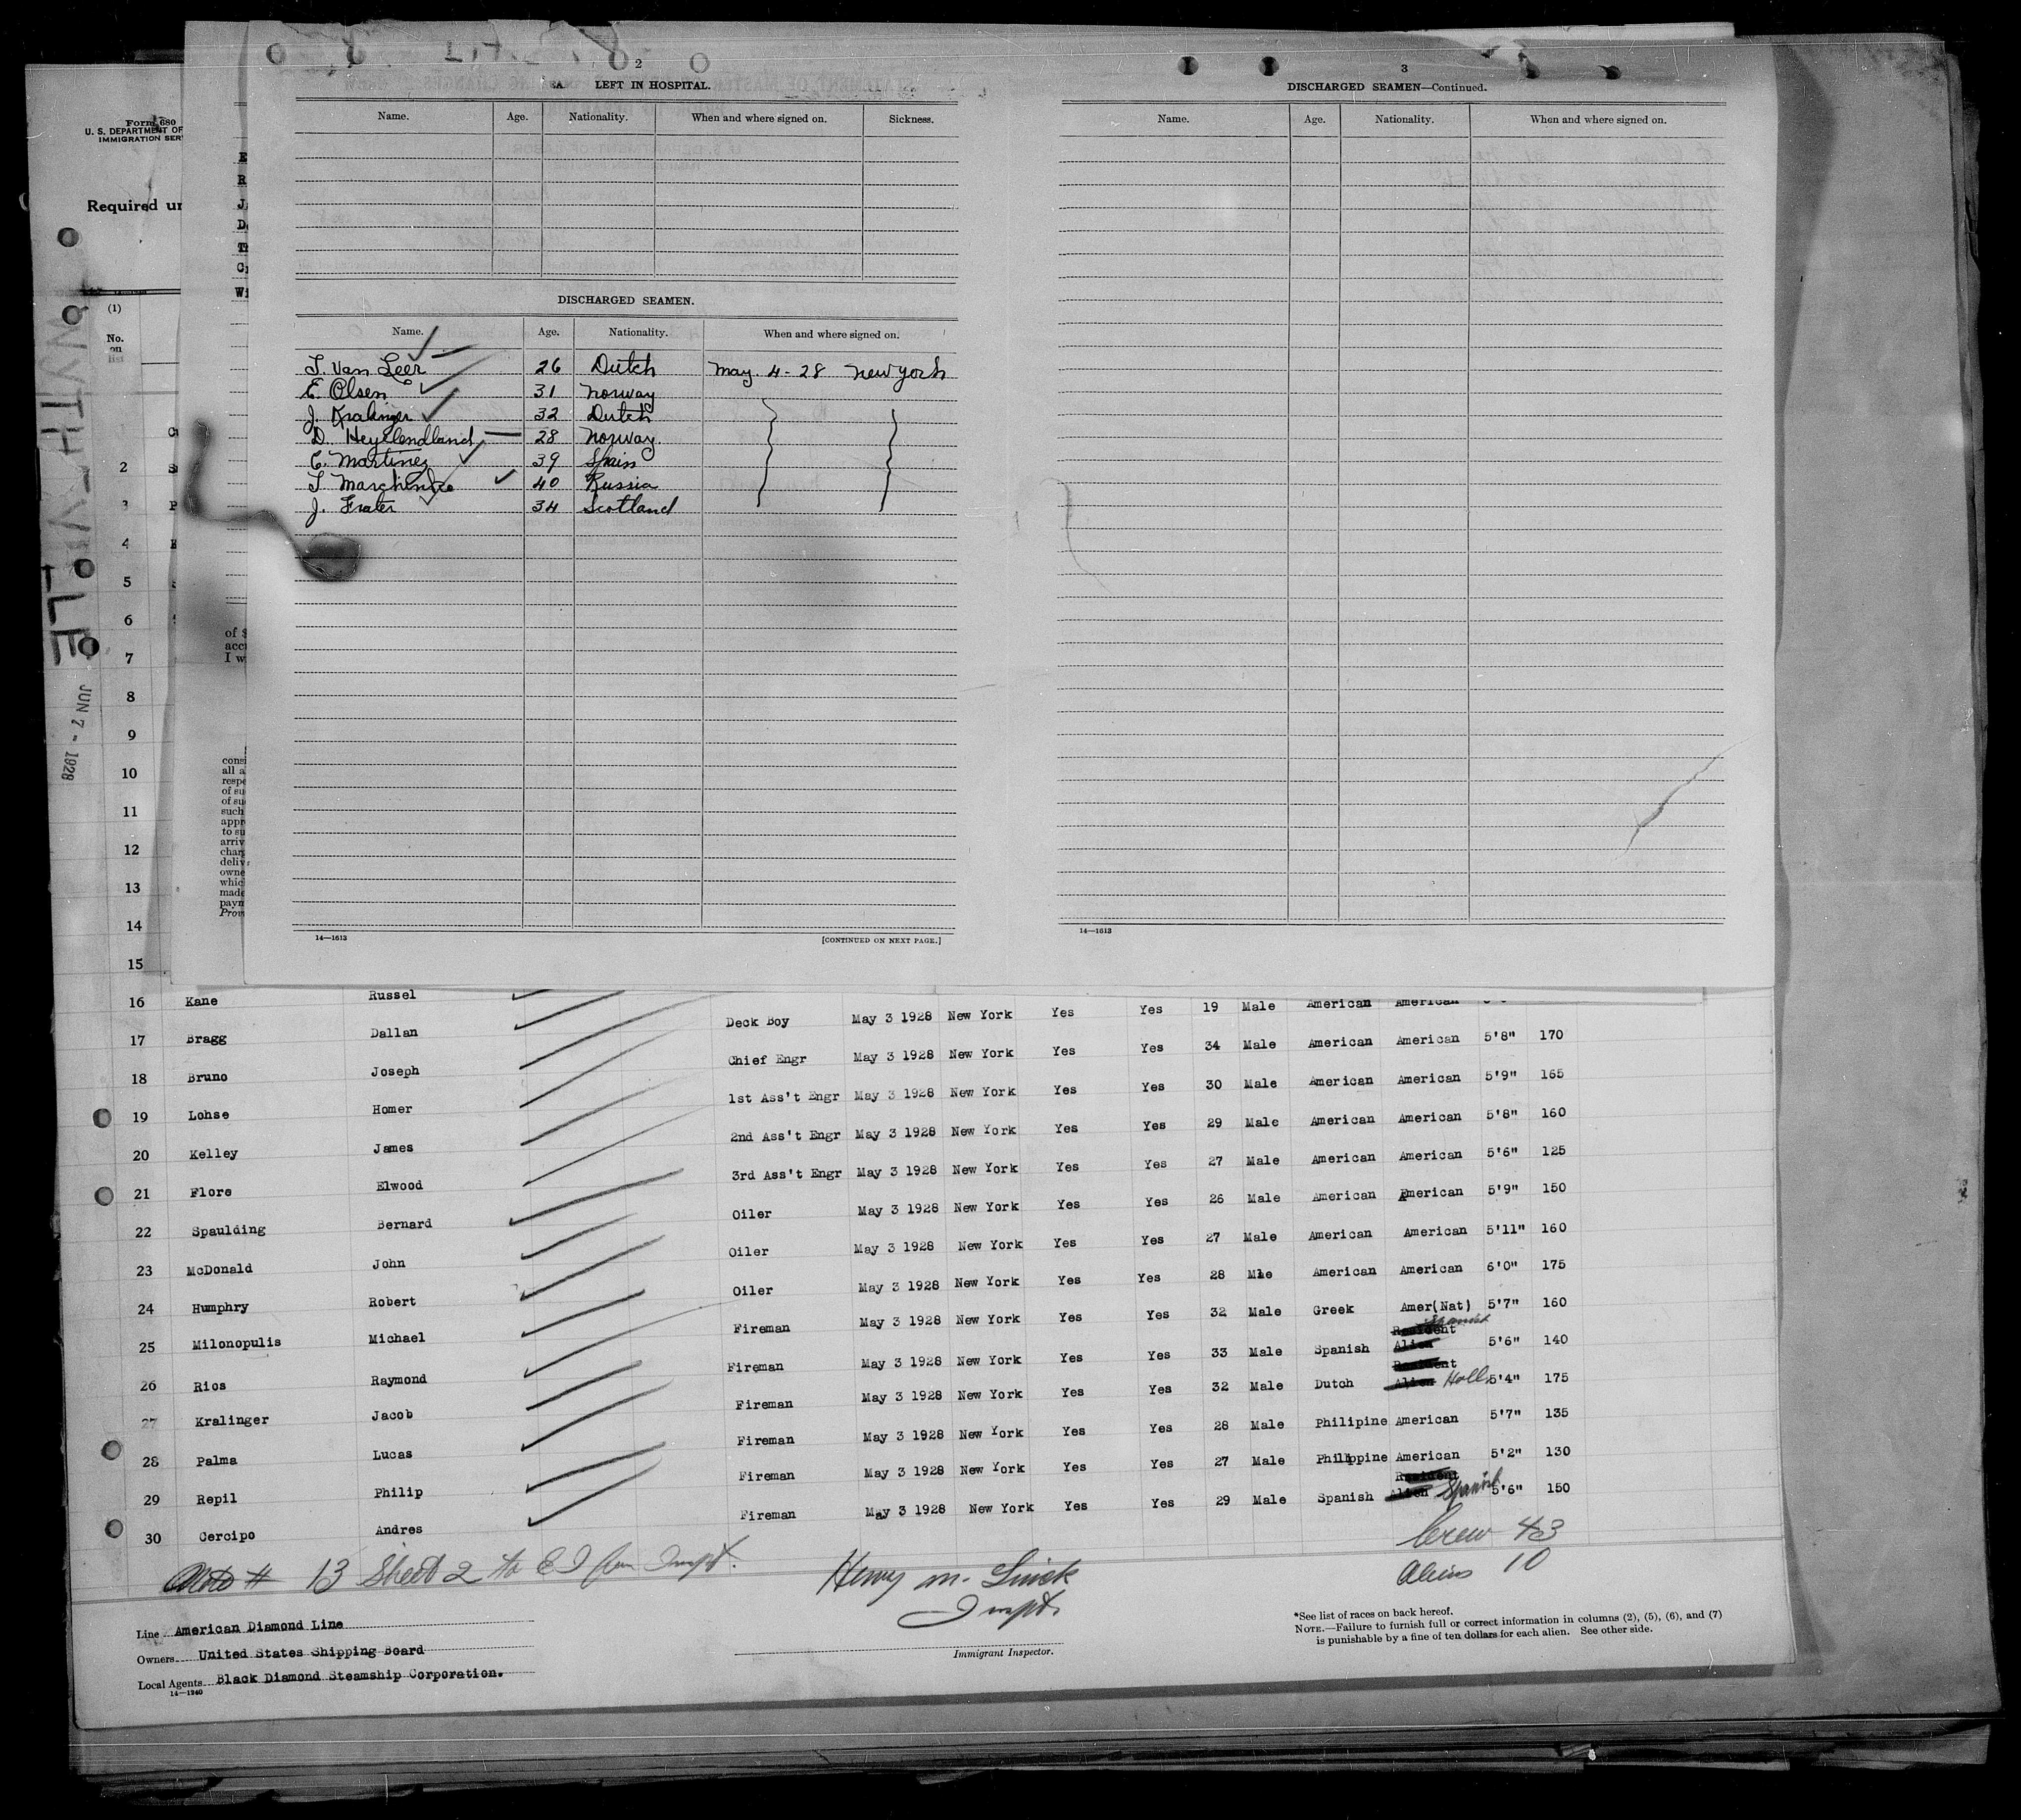 Form 680
U. S. DEPARTMENT OF
IMMIGRATION SER
Required un
(1)
No.
on
list
2
LEFT IN HOSPITAL.
Name. Age. Nationality. When and where signed on. Sickness.
DISCHARGED SEAMEN.
Name. Age. Nationality. When and where signed on.
T. Van Leer 26 Dutch May. 4-28 New York
E. Olsen 31 Norway
J. Kralinger 32 Dutch
D. 28 Norway.
E. Martinez 39 Spain
T. 40 Russia
J. Frater 34 Scotland
14—1613 [CONTINUED ON NEXT PAGE.]
3
DISCHARGED SEAMEN—Continued.
Name. Age. Nationality. When and where signed on.
14—1613
JUN 7 - 1928
of
acc
I w
consi
all a
respe
of su
of su
such
appr
to su
arriv
char
deliv
owne
whic
made
paym
Prov
2
3
4
5
6
7
8
9
10
11
12
13
14
15
16 Kane Russel Deck Boy May 3 1928 New York Yes Yes 19 Male American American
17 Bragg Dallan Chief Engr May 3 1928 New York Yes Yes 34 Male American American 5'8" 170
18 Bruno Joseph 1st Ass't Engr May 3 1928 New York Yes Yes 30 Male American American 5'9" 165
19 Lohse Homer 2nd Ass't Engr May 3 1928 New York Yes Yes 29 Male American American 5'8" 160
20 Kelley James 3rd Ass't Engr May 3 1928 New York Yes Yes 27 Male American American 5'6" 125
21 Flore Elwood Oiler May 3 1928 New York Yes Yes 26 Male American American 5'9" 150
22 Spaulding Bernard Oiler May 3 1928 New York Yes Yes 27 Male American American 5'11" 160
23 McDonald John Oiler May 3 1928 New York Yes Yes 28 Mle American American 6'0" 175
24 Humphry Robert Fireman May 3 1928 New York Yes Yes 32 Male Greek Amer(Nat) 5'7" 160
25 Milonopulis Michael Fireman May 3 1928 New York Yes Yes 33 Male Spanish Resident Alien Spanish 5'6" 140
26 Rios Raymond Fireman May 3 1928 New York Yes Yes 32 Male Dutch Resident Alien Holl 5'4" 175
27 Kralinger Jacob Fireman May 3 1928 New York Yes Yes 28 Male Philipine American 5'7" 135
28 Palma Lucas Fireman May 3 1928 New York Yes Yes 27 Male Philippine American 5'2" 130
29 Repil Philip Fireman May 3 1928 New York Yes Yes 29 Male Spanish Resident Alien Spanish 5'6" 150
30 Cercipo Andres
Crew 43
Note # 13 Sheet 2 to Inspt.
Henry M. Linick
Inspt.
Aliens 10
Line American Diamond Line
Owners United States Shipping Board
Local Agents Black Diamond Steamship Corporation.
14—1240
Immigrant Inspector.
*See list of races on back hereof.
NOTE.—Failure to furnish full or correct information in columns (2), (5), (6), and (7)
is punishable by a fine of ten dollars for each alien. See other side.